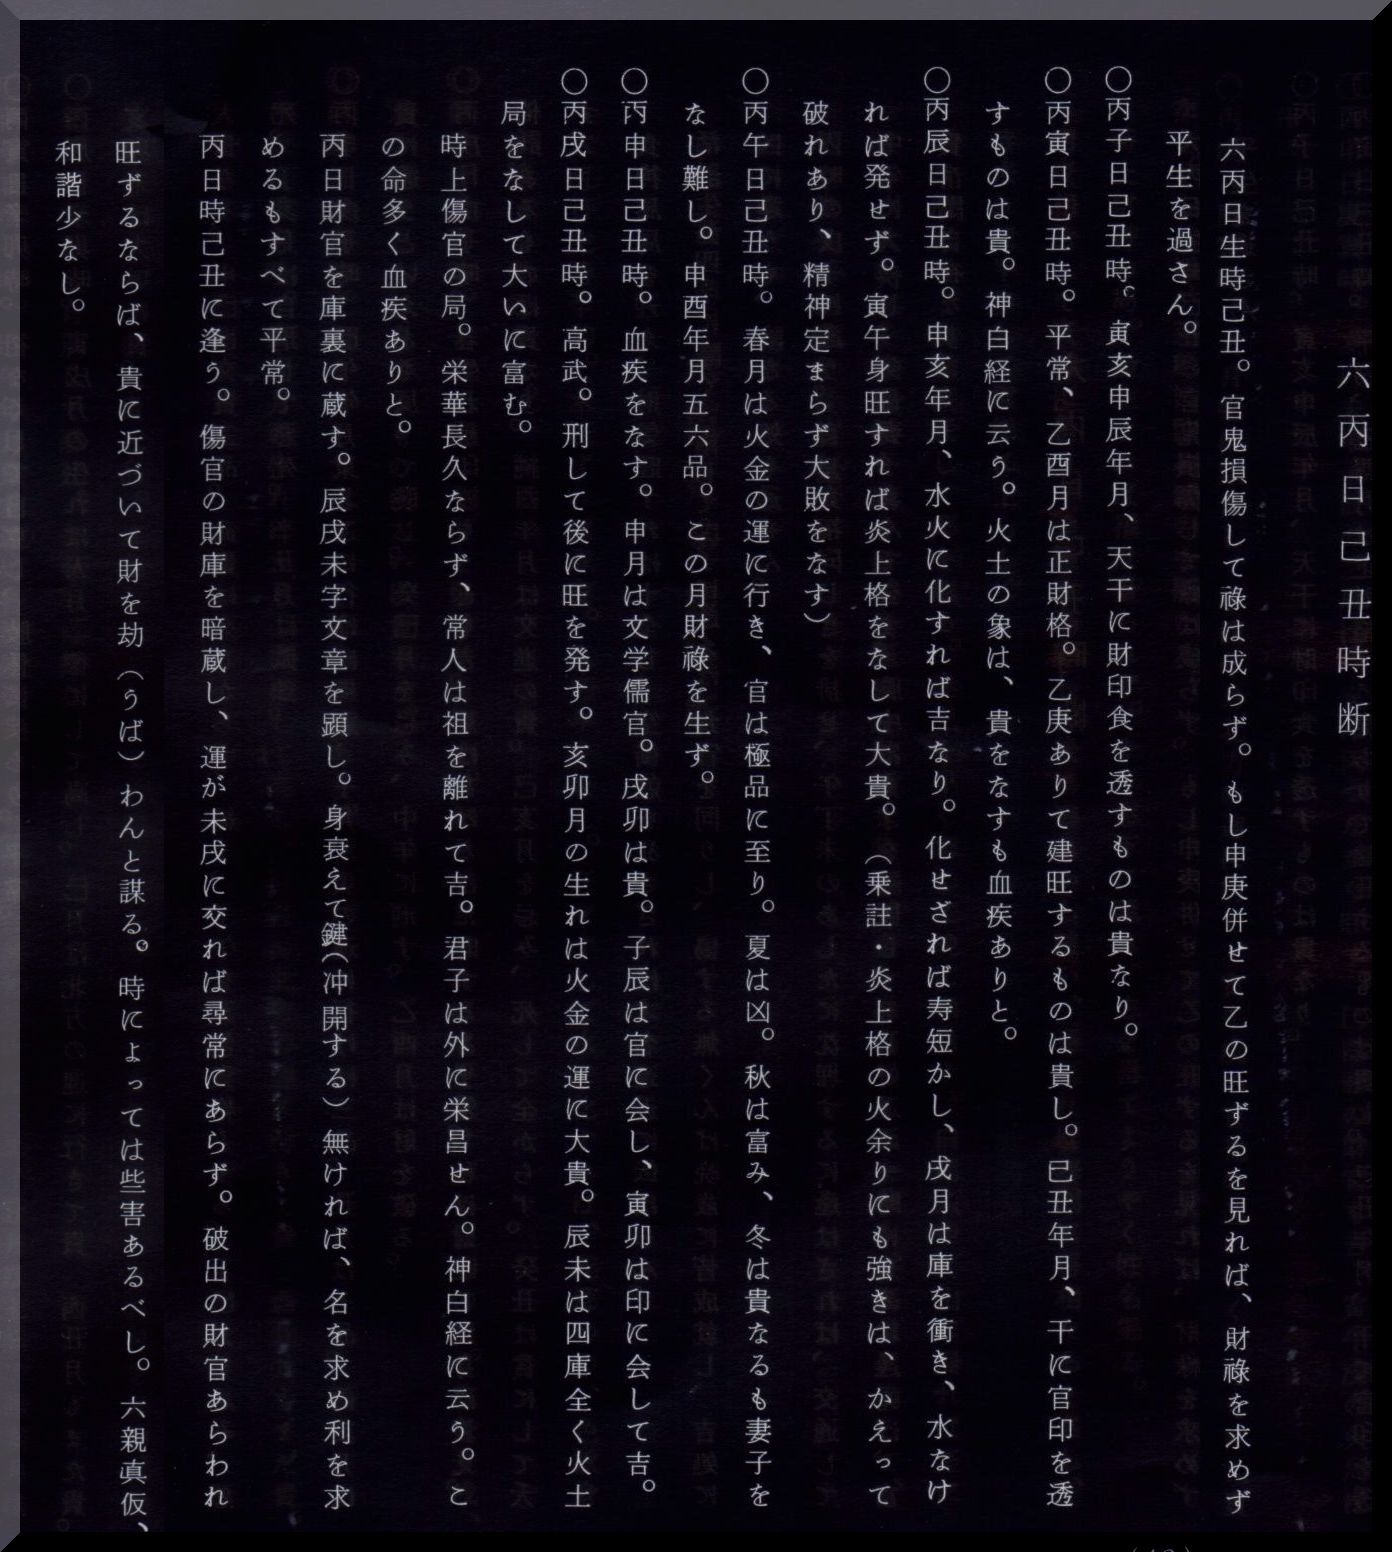 六丙日己丑時断
六丙日生時己丑。官鬼損傷して祿は成らず。もし申庚併せて乙の旺ずるを見れば、財祿を求めず
平生を過さん。
〇丙子日己丑時。寅亥申辰年月、天干に財印食を透すものは貴なり。
〇丙寅日己丑時。平常、乙酉月は正財格。乙庚ありて建旺するものは貴し。巳丑年月、干に官印を透
すものは貴。神白経に云う。火土の象は、貴をなすも血疾ありと。
〇丙辰日己丑時。申亥年月、水火に化すれば吉なり。化せざれば寿短かし、戌月は庫を衝き、水なけ
れば発せず。寅午身旺すれば炎上格をなして大貴。（乗註・炎上格の火余りにも強きは、かえって
破れあり、精神定まらず大敗をなす）
〇丙午日己丑時。春月は火金の運に行き、官は極品に至り。夏は凶。秋は富み、冬は貴なるも妻子を
なし難し。申酉年月五六品。この月財祿を生ず。
〇丙申日己丑時。血疾をなす。申月は文学儒官。戌卯は貴。子辰は官に会し、寅卯は印に会して吉。
〇丙戌日己丑時。高武。刑して後に旺を発す。亥卯月の生れは火金の運に大貴。辰未は四庫全く火土
局をなして大いに富む。
時上傷官の局。栄華長久ならず、常人は祖を離れて吉。君子は外に栄昌せん。神白経に云う。こ
の命多く血疾ありと。
丙日財官を庫裏に蔵す。辰戌未字文章を顕し。身衰えて鍵（冲開する）無ければ、名を求め利を求
めるもすべて平常。
丙日時己丑に逢う。傷官の財庫を暗蔵し、運が未戌に交れば尋常にあらず。破出の財官あらわれ
旺ずるならば、貴に近づいて財を劫（うば）わんと謀る。時によっては些害あるべし。六親真仮、
和諧少なし。